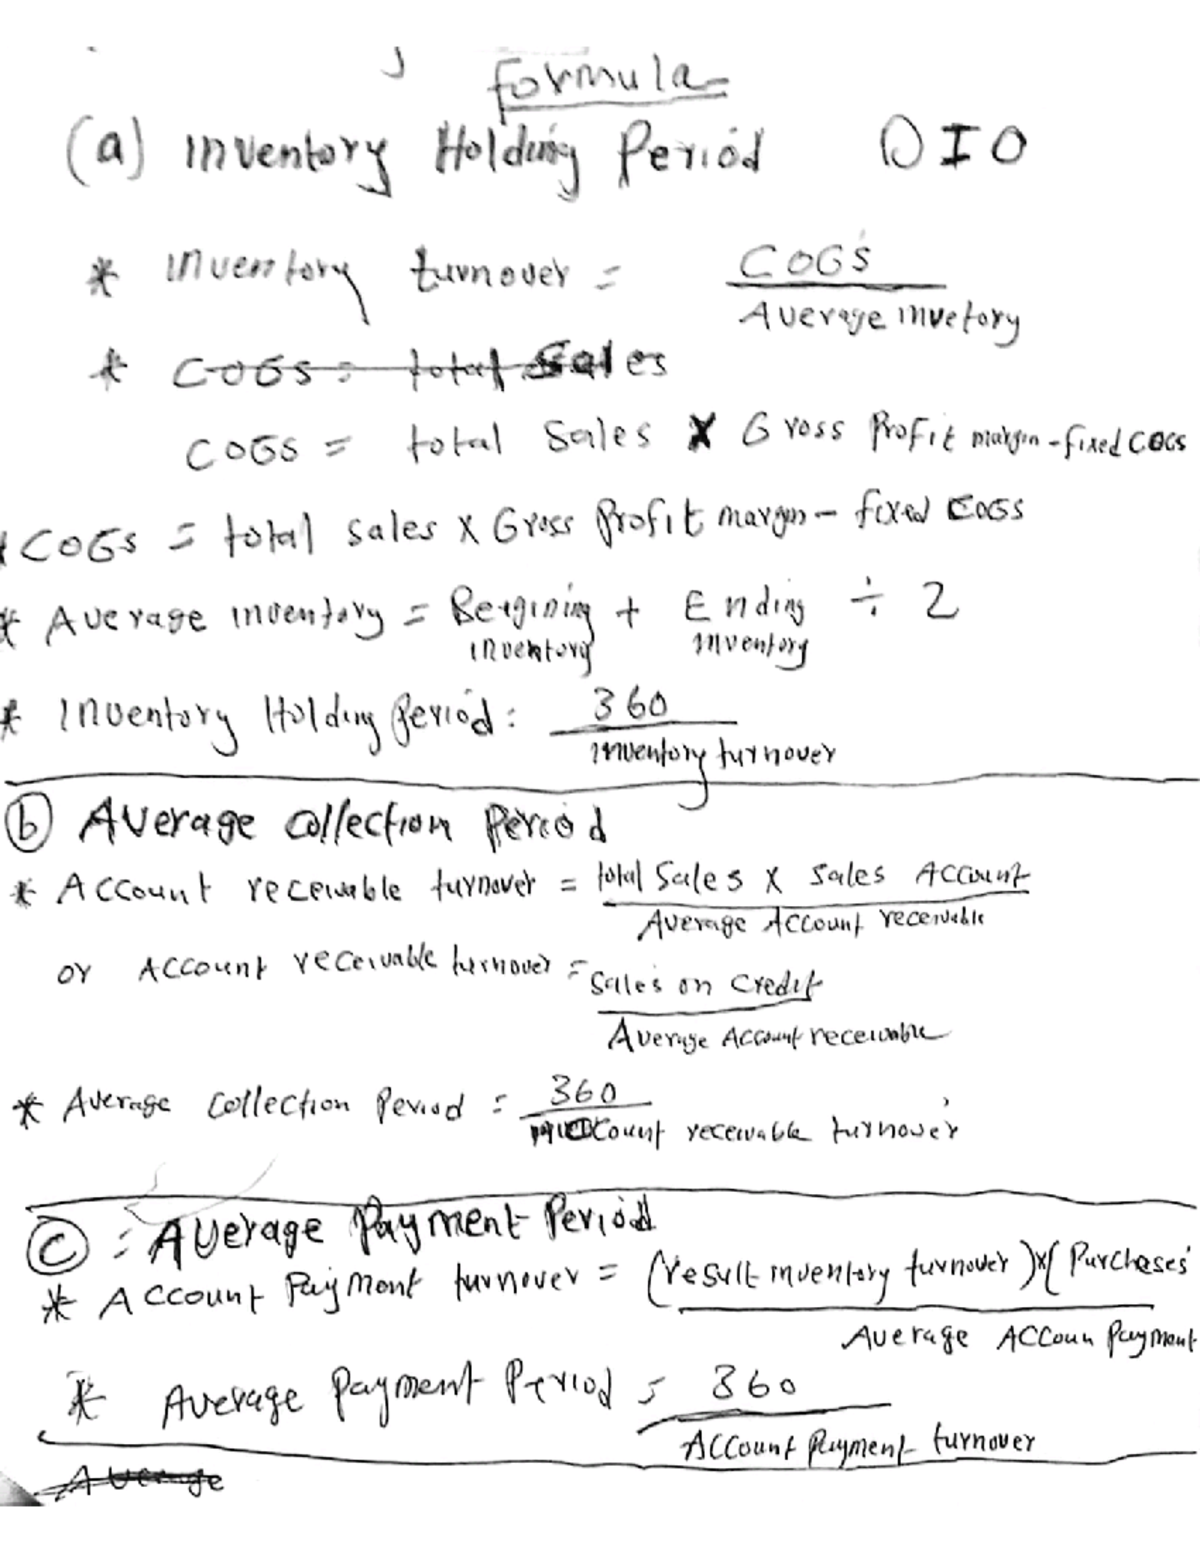 Formula
(a) Inventory Holding Period DIO
* inventory turnover = COGS / Average invetory
* COGS = total Sales
COGS = total Sales X Gross Profit margin - fixed COGS
* COGS = total sales X Gross Profit margin - fixed COGS
* Average inventory = Beigining inventory + Ending inventory ÷ 2
* Inventory Holding Period : 360 / inventory turnover
(b) Average collection Period
* Account receivable turnover = total Sales X Sales Account / Average Account receivable
or Account receivable turnover = Sales on credit / Average Account receivable
* Average Collection Period = 360 / Account receivable turnover
(C) : Average Payment Period
* Account Payment turnover = (result inventory turnover) x (Purchases / Average Accoun Payment
* Average Payment Period = 360 / Account Payment turnover
Average